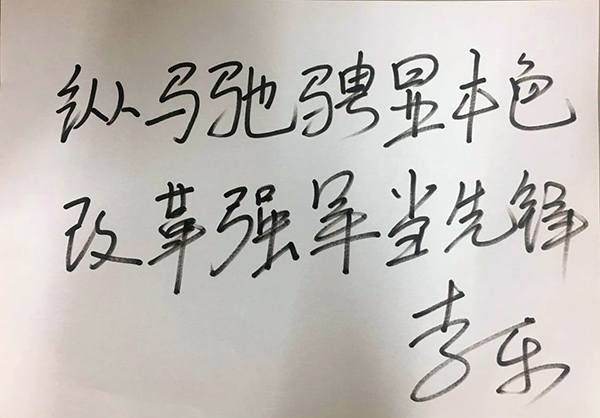 纵马驰骋显本色
改革强军当先锋
李乐